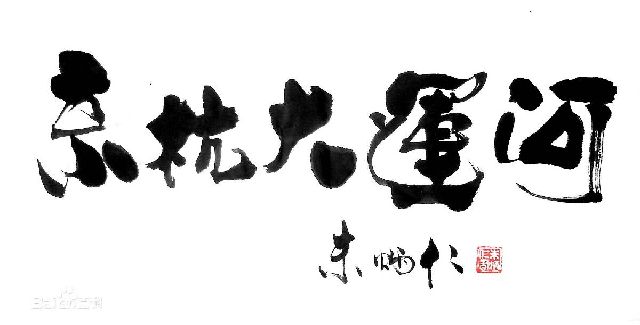 京杭大運河
朱炳仁
Baidu百科